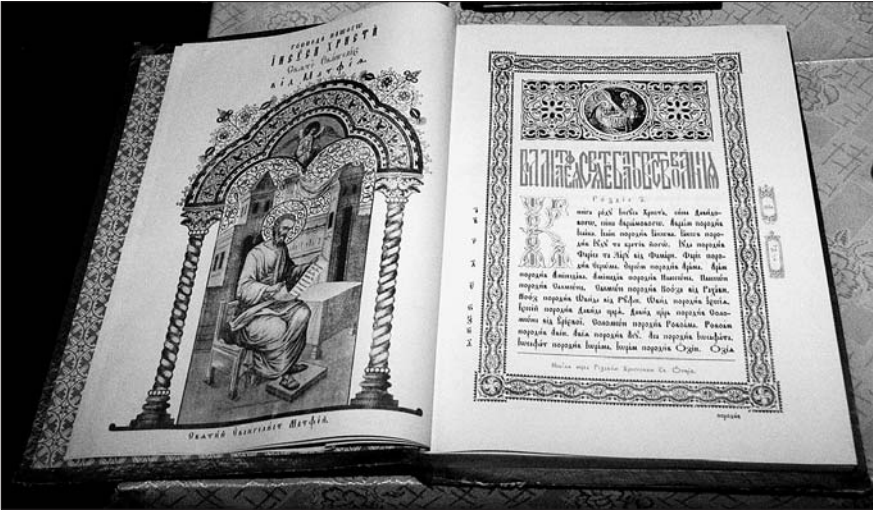 господа нашогѡ
Іисуса Христа
Святе Євангеліє
від Матфія
Святий Євангелист Матфій.
Розділ 1.
Книга роду Іисуса Христа, сина Давидо-
вогѡ, сина Авраамовогѡ. Авраам породив
Ісаака. Ісаак породив Іакова. Іаков поро-
див Іуду та братів йогѡ. Іуда породив
Фареса та Зару від Фамари. Фарес поро-
див Есрома. Есром породив Арама. Арам
породив Амінадава. Амінадав породив Наассона. Наассон
породив Салмона. Салмон породив Вооза від Рахави.
Вооз породив Ѡвида від Руфи. Ѡвид породив Ієссія.
Ієссій породив Давида царя. Давид царь породив Соло-
мона від Урієвої. Соломон породив Ровоама. Ровоам
породив Авію. Авія породив Асу. Аса породив Іосафата.
Іосафат породив Іорама. Іорам породив Озію. Озія
Неділя перед Різдвом Христовим Св. Отців.
породив